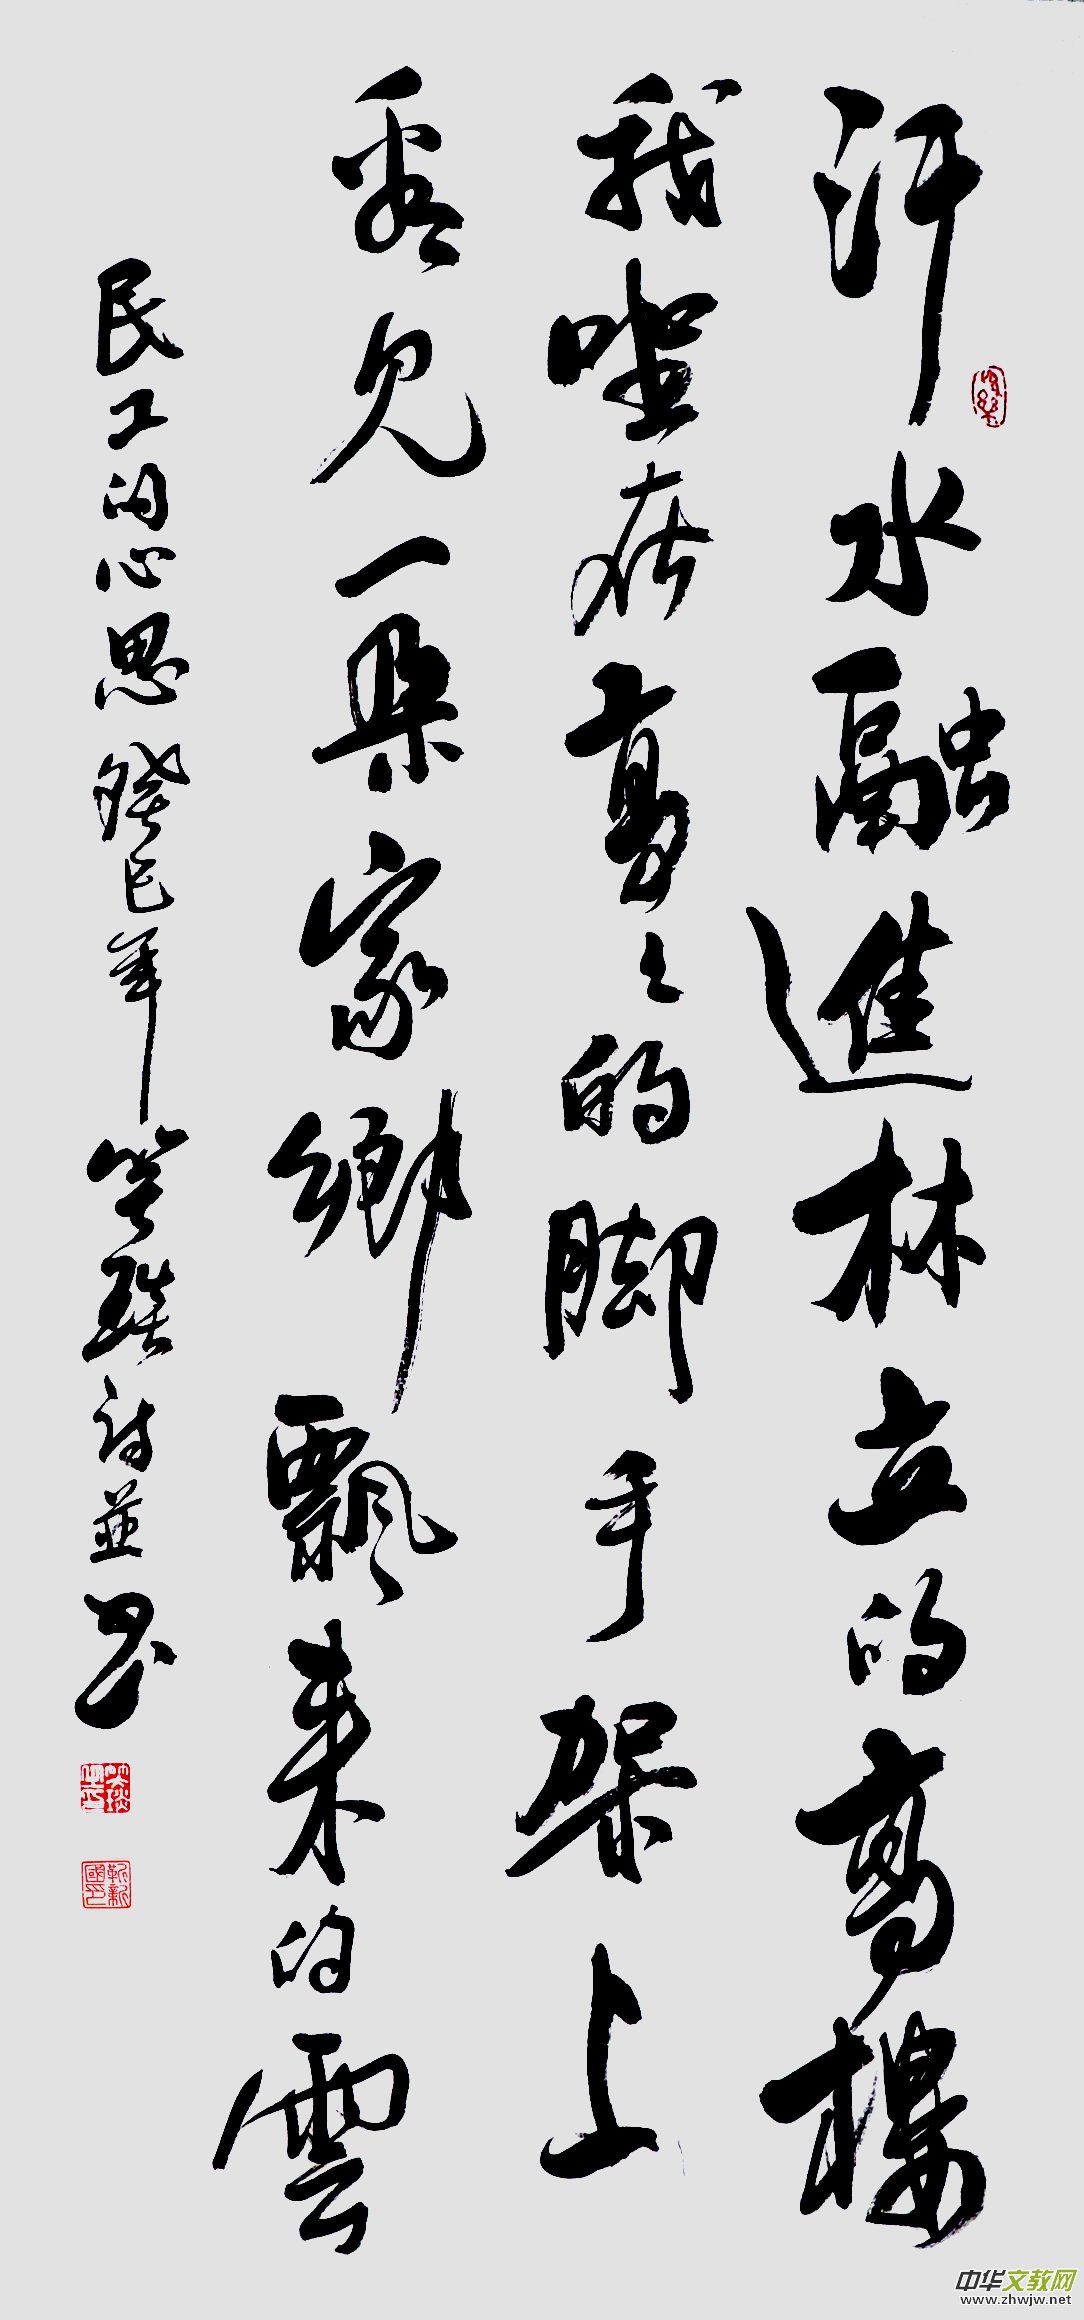 汗水融進林立的高樓
我坐在高々的脚手架上
看見一朵家鄉飄来的雲
民工的心思 癸巳年 詩並書
靳新國印
中华文教网
www.zhwjw.net